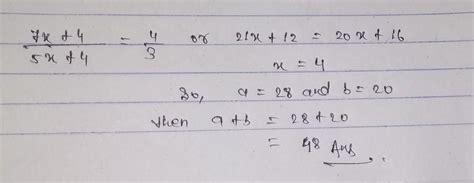 (7x + 4)/(5x + 4) = 4/3 or 21x + 12 = 20x + 16
x = 4
So, a = 28 and b = 20
then a + b = 28 + 20
= 48 Ans.